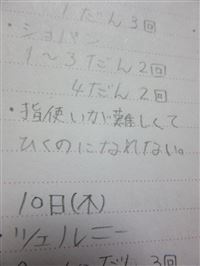 1だん3回
ショパン
1〜3だん2回
4だん2回
・指使いが難しくて
ひくのになれない。
10日(木)
・ツェルニー
だん3回